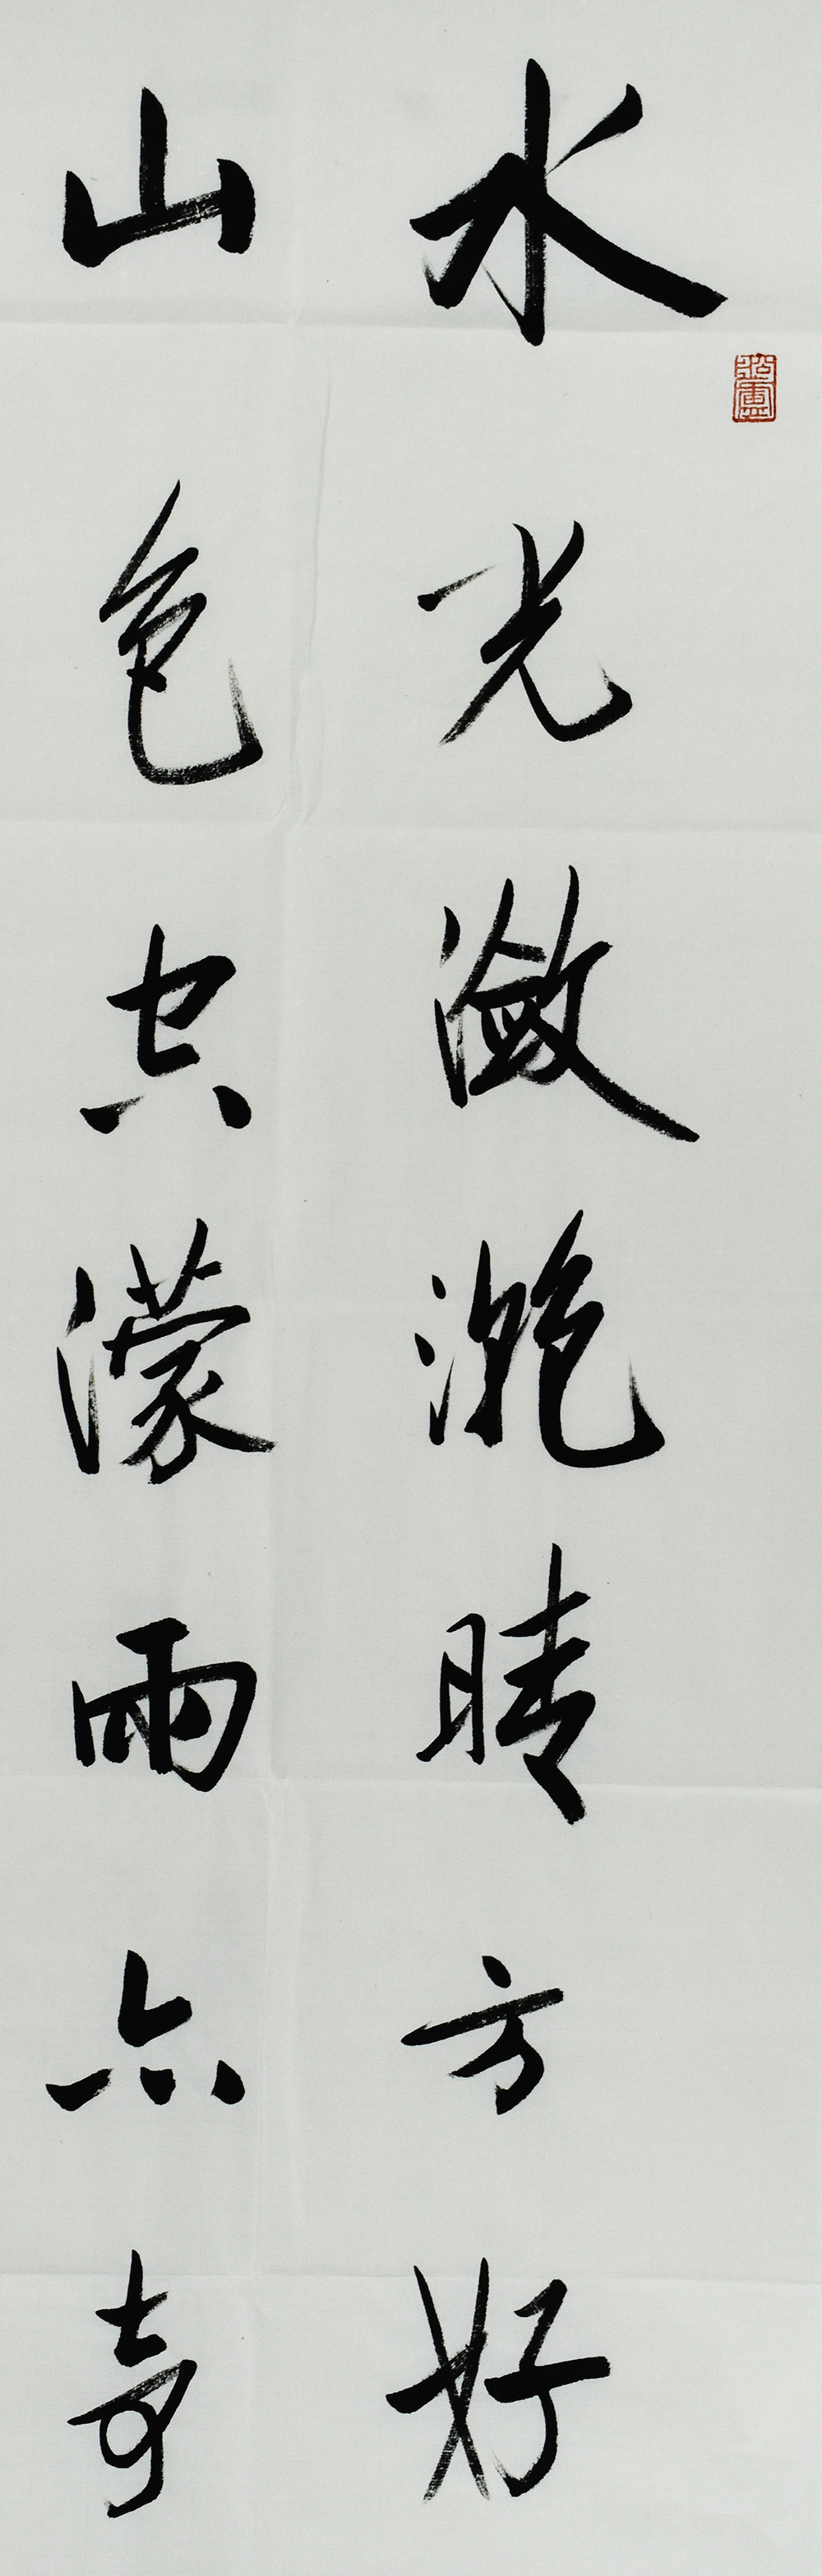 水光瀲灧晴方好
山色空濛雨亦奇